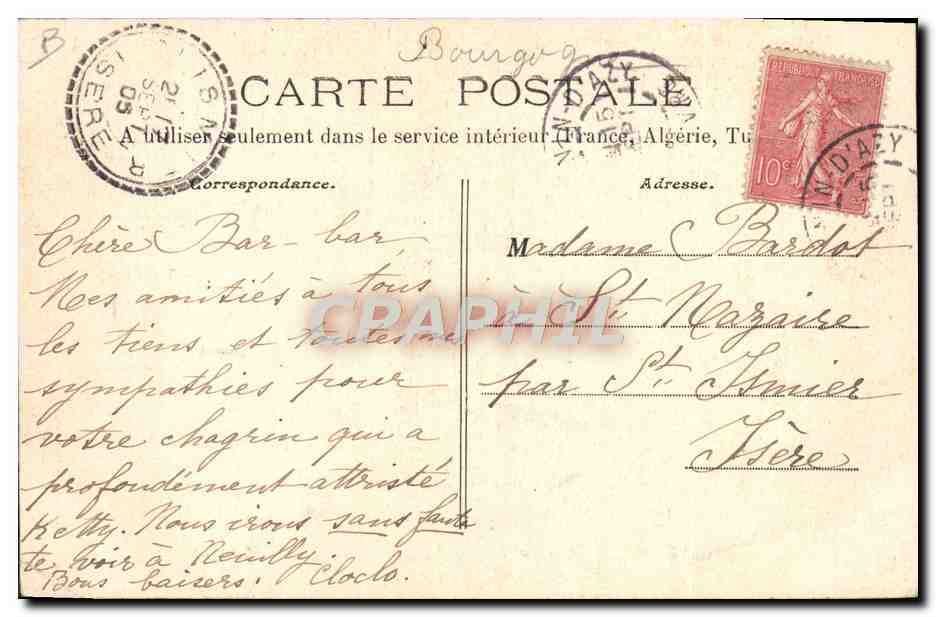 B
Bourgog
CARTE POSTALE
A utiliser seulement dans le service intérieur, France, Algérie, Tu
REPUBLIQUE FRANÇAISE
10 c
ISERE
05
N-D'AZY
N-D'AZY
Correspondance.
Adresse.
Chère Bar-bar,
Mes amitiés à tous
les tiens et toutes
sympathies pour
votre chagrin qui a
profondément attristé
Ketty. Nous irons sans faute
te voir à Neuilly.
Bons baisers. Cloclo.
Madame Bardot
à St Nazaire
par St Ismier
Isère
CPAPHIL